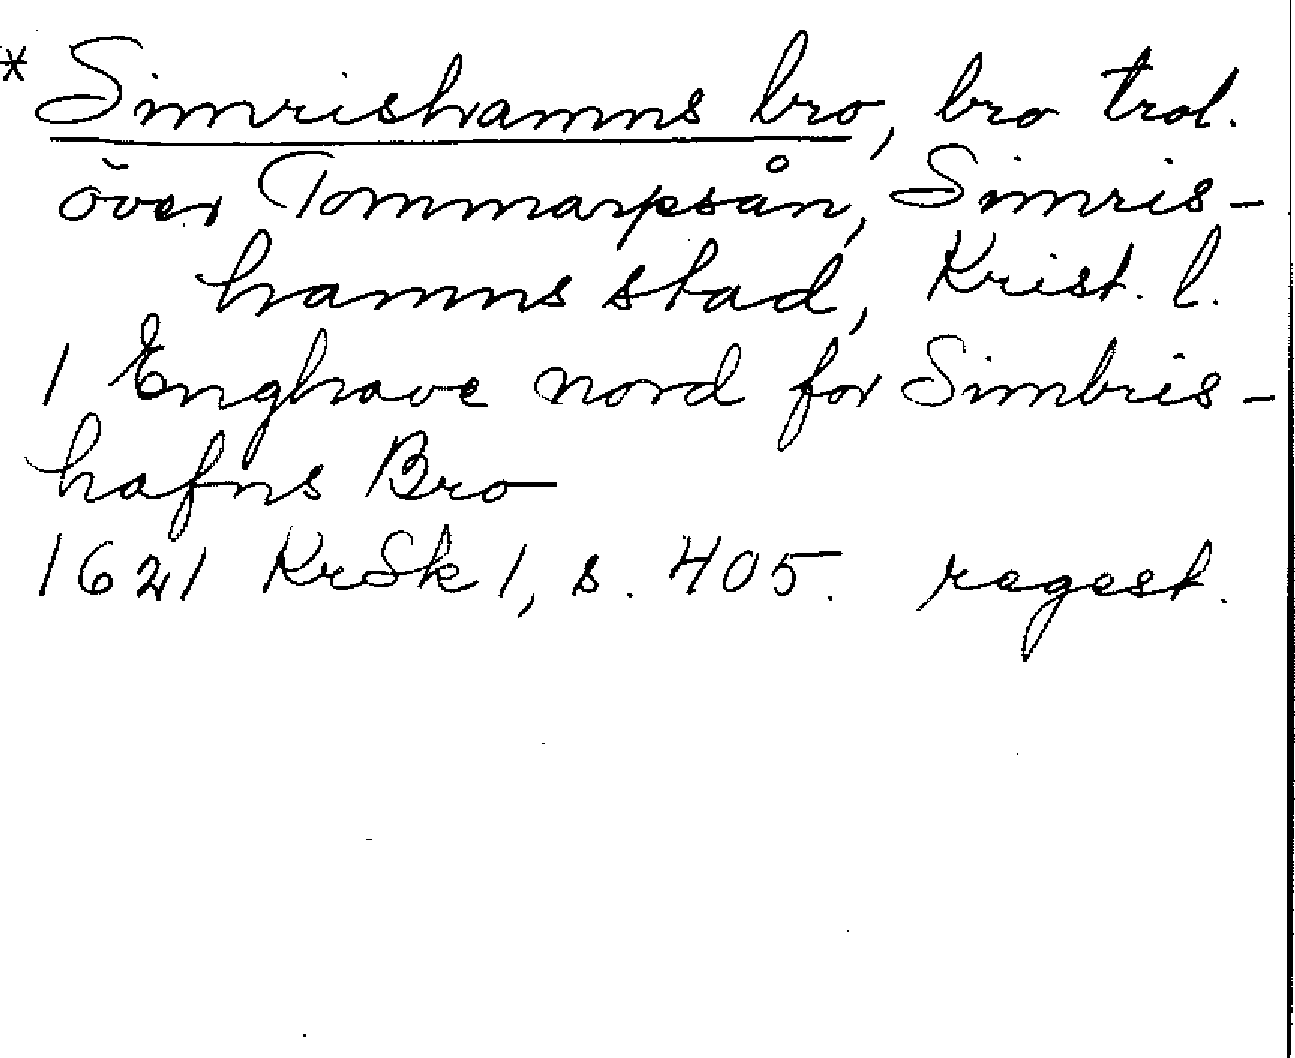 * Simrishamns bro, bro trol.
över Tommarpsån, Simris-
hamns stad, Krist. l.
1 Enghave nord for Simbris-
hafns Bro
1621 KrSk 1, s. 405. regest.